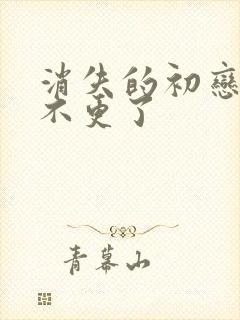 消失的初戀
不更了
青幕山